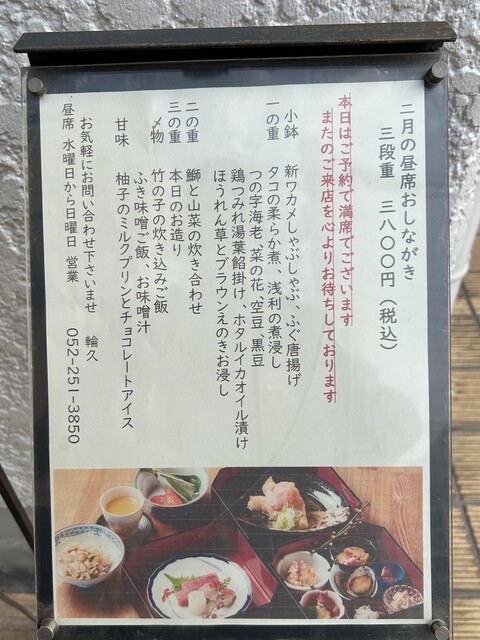 二月の昼席おしながき
三段重 三八〇〇円(税込)
本日はご予約で満席でございます
またのご来店を心よりお待ちしております
小鉢 新ワカメしゃぶしゃぶ、ふぐ唐揚げ
一の重 タコの柔らか煮、浅利の煮浸し
つの字海老、菜の花、空豆、黒豆
鶏つみれ湯葉餡掛け、ホタルイカオイル漬け
ほうれん草とブラウンえのきお浸し
二の重 鰤と山菜の炊き合わせ
三の重 本日のお造り
〆物 竹の子の炊き込みご飯
ふき味噌ご飯、お味噌汁
甘味 柚子のミルクプリンとチョコレートアイス
お気軽にお問い合わせ下さいませ 輪久
昼席 水曜日から日曜日 営業 052-251-3850